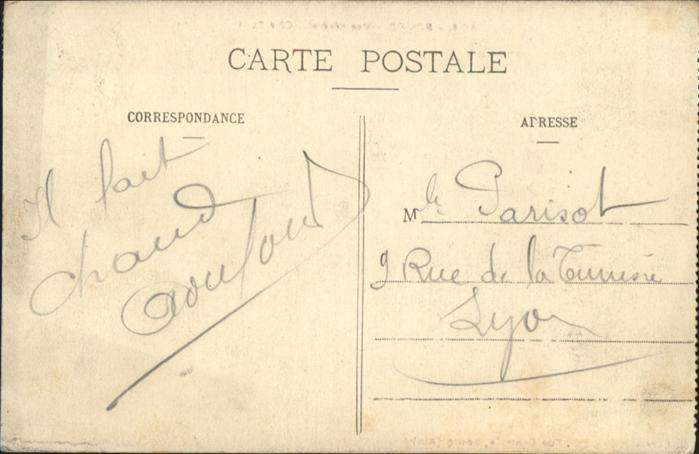 CARTE POSTALE
CORRESPONDANCE
ADRESSE
Il fait
chaud
Mlle Parisot
9 Rue de la Tunisie
Lyon